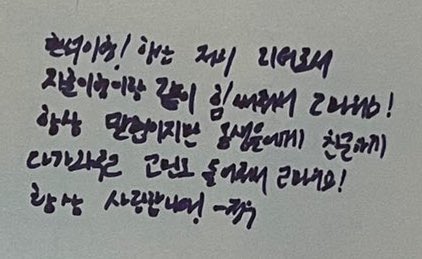 현석이형! 항상 저희 리더로서
지훈이형이랑 같이 힘써줘서 고마워요!
항상 맏형이지만 동생들에게 친근하게
다가와주고 고민도 들어줘서 고마워요!
항상 사랑합니다! -정우